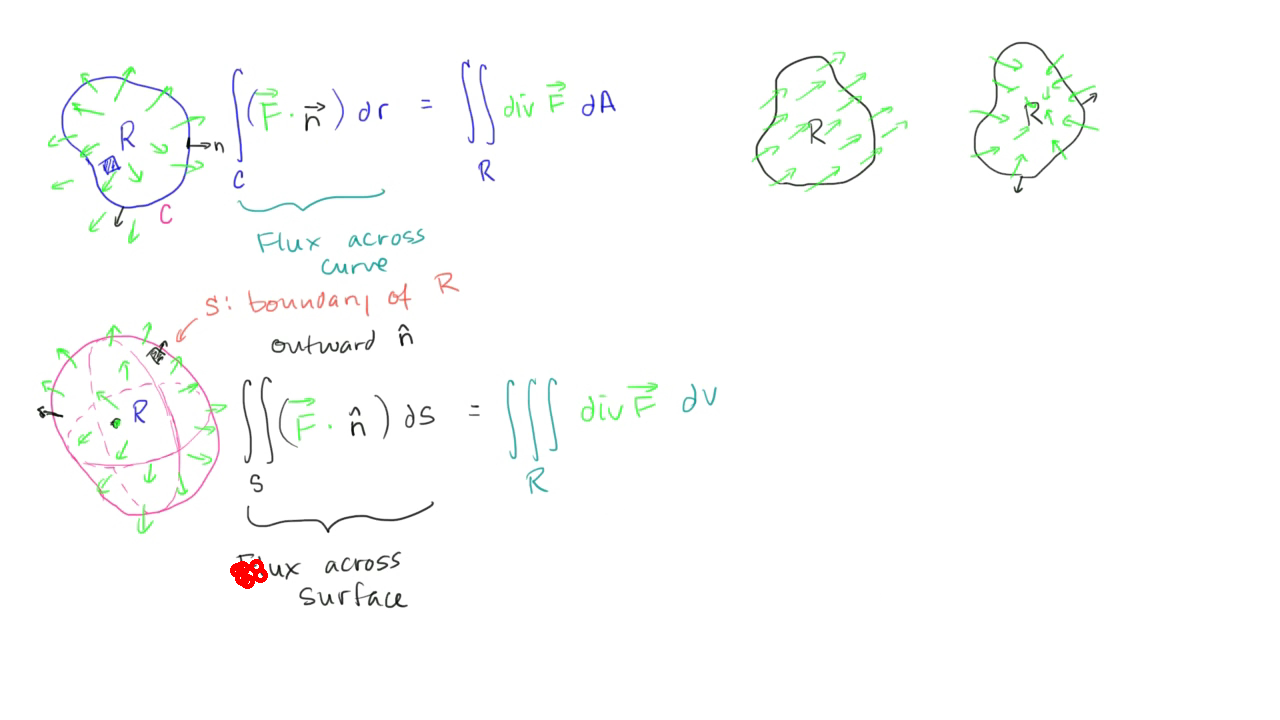 R
n
C
∫ ( F⃗ · n⃗ ) dr = ∬ div F⃗ dA
C R
Flux across
curve
R
R
S: boundary of R
outward n̂
R
∬ ( F⃗ · n̂ ) dS = ∭ div F⃗ dV
S R
ux across
surface